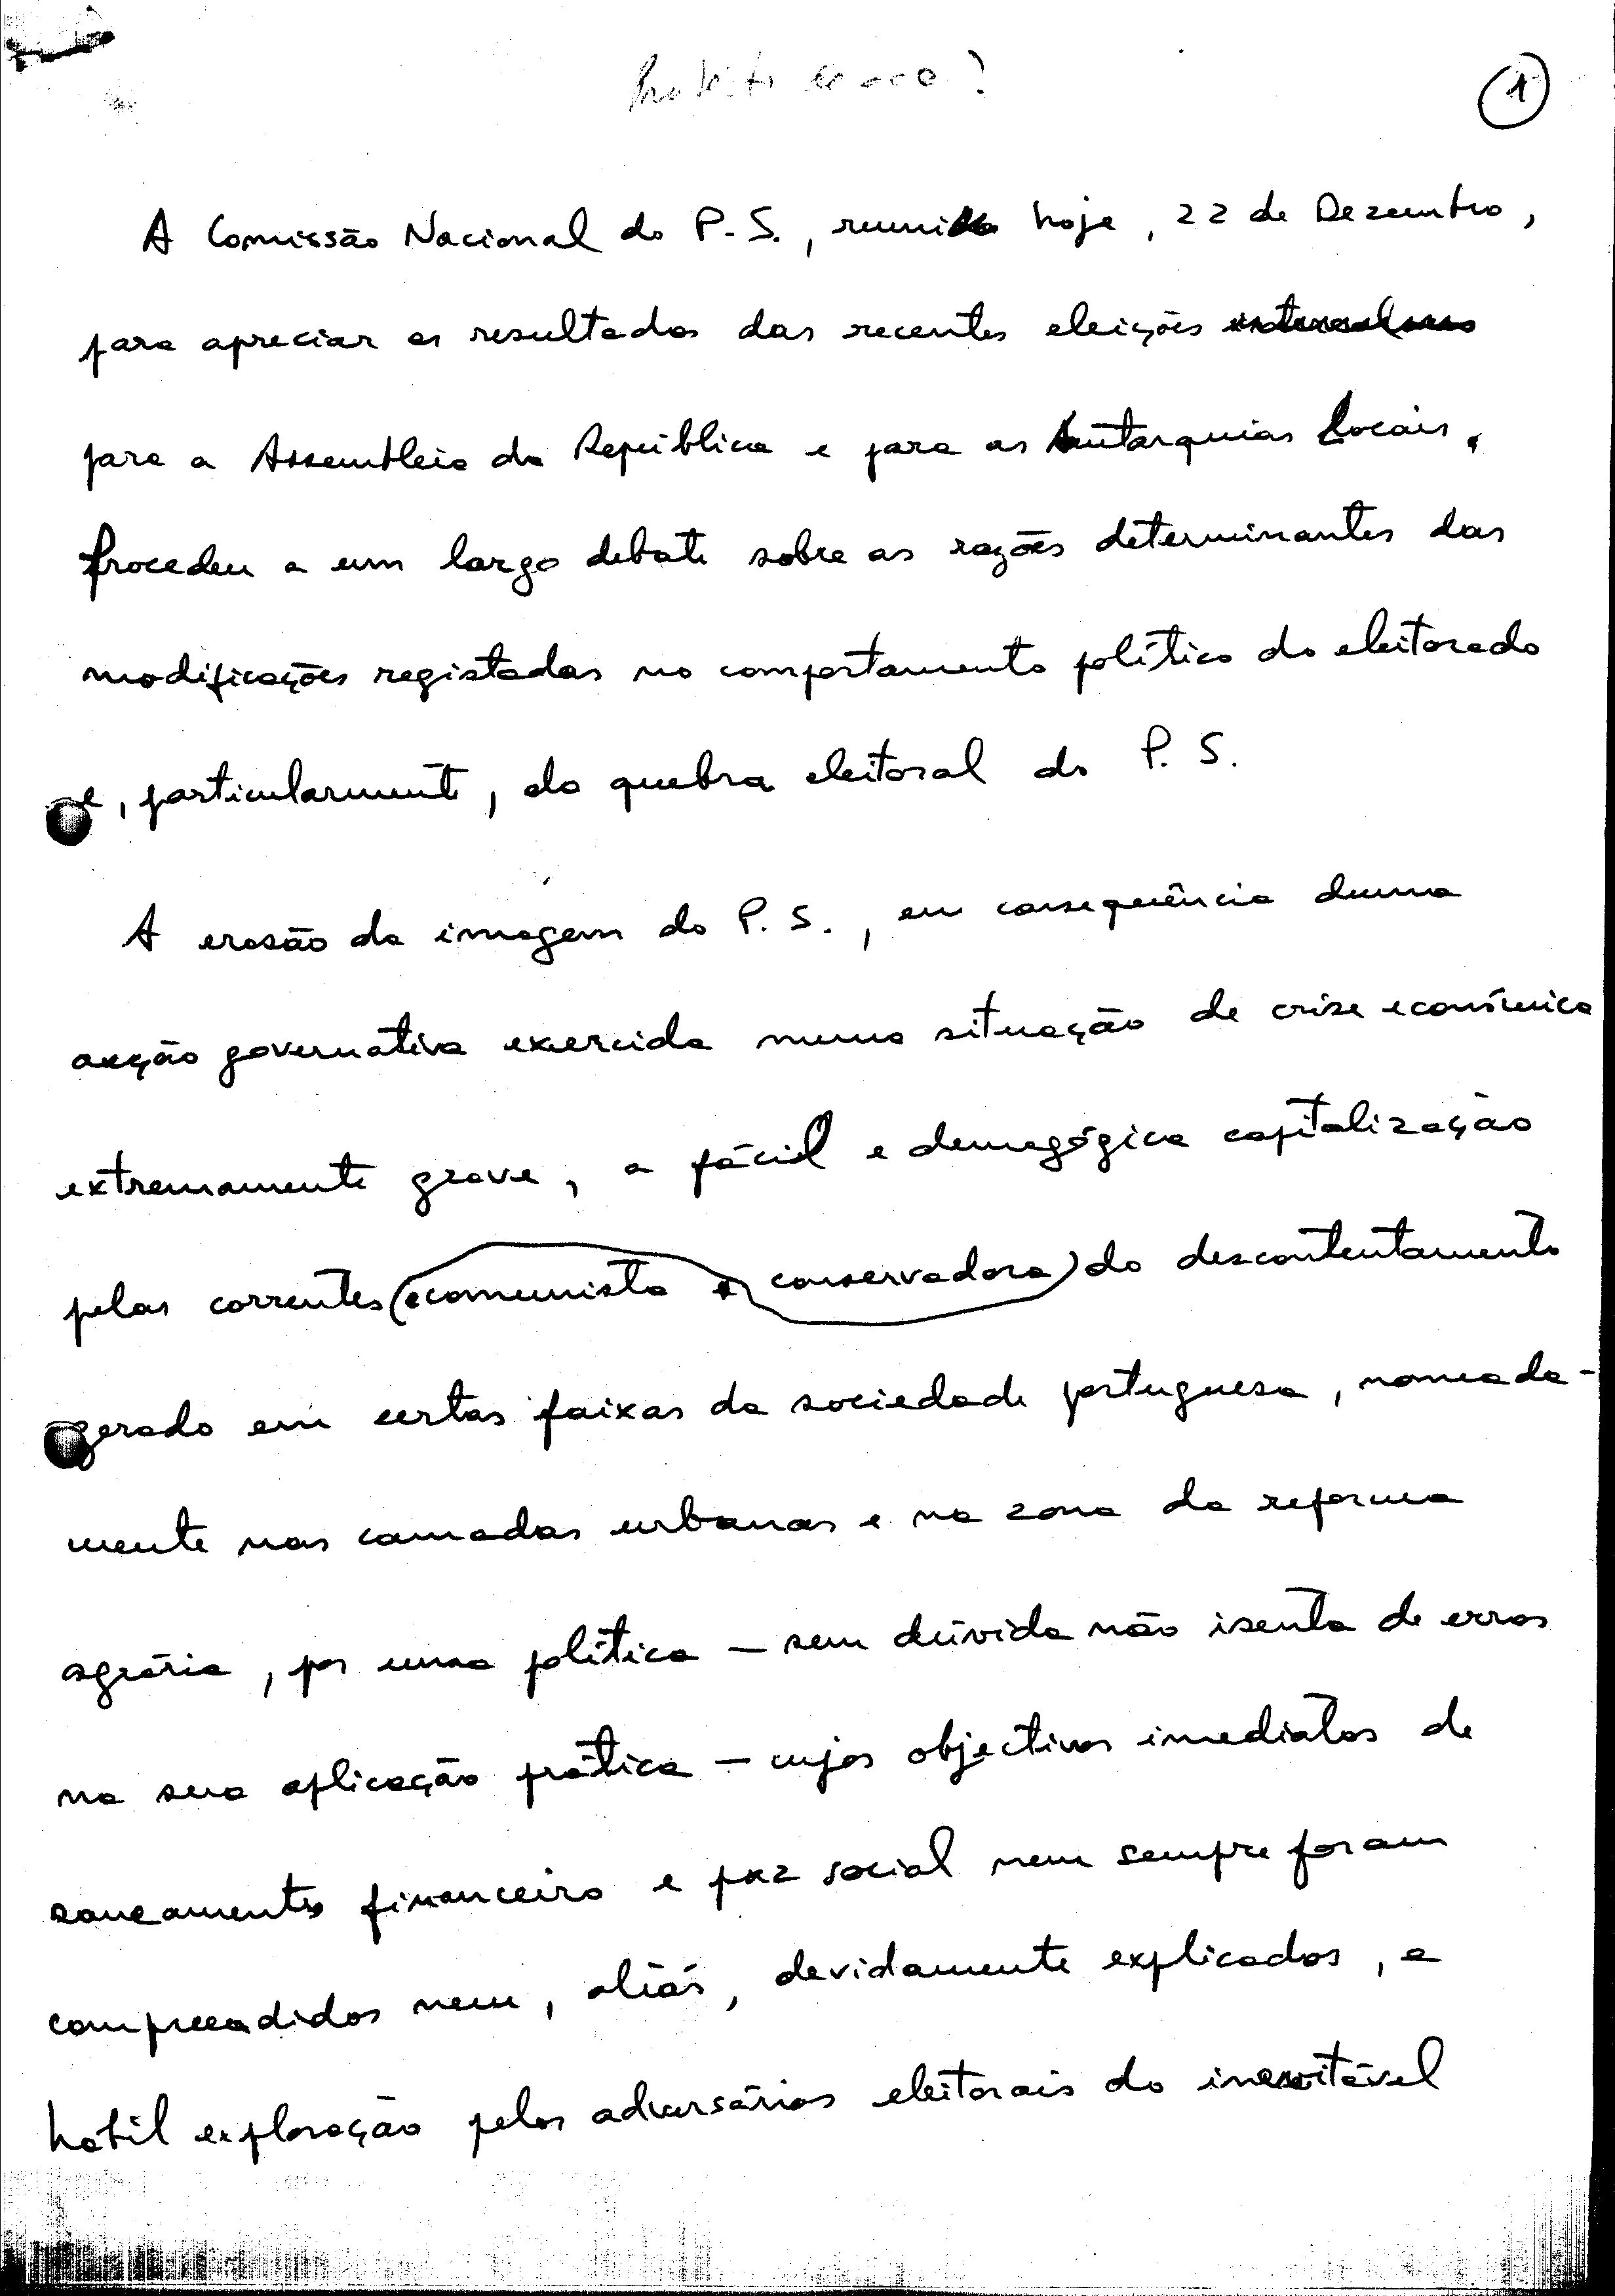 1
A Comissão Nacional do P.S., reunida hoje, 22 de Dezembro,
para apreciar os resultados das recentes eleições
para a Assembleia da República e para as autarquias locais,
procedeu a um largo debate sobre as razões determinantes das
modificações registadas no comportamento político do eleitorado
e, particularmente, da quebra eleitoral do P.S.
A erosão da imagem do P.S., em consequência duma
acção governativa exercida numa situação de crise económica
extremamente grave, a fácil e demagógica capitalização
pelas correntes (comunista e conservadora) do descontentamento
gerado em certas faixas da sociedade portuguesa, nomeada-
mente nas camadas urbanas e na zona da reforma
agrária, por uma política — sem dúvida não isenta de erros
na sua aplicação prática — cujos objectivos imediatos de
saneamento financeiro e paz social nem sempre foram
compreendidos nem, aliás, devidamente explicados, a
hábil exploração pelos adversários eleitorais do inevitável